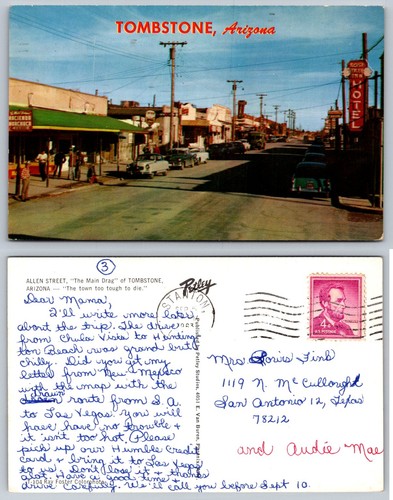 TOMBSTONE, Arizona
HOTEL
3
ALLEN STREET, "The Main Drag" of TOMBSTONE,
ARIZONA — "The town too tough to die."
Petley
STANTON
Dear Mama,
I'll write more later
about the trip. The drive
from Chula Vista to Hunting
ton Beach was grand but
chilly. Did you get my
letter from New Mexico
with the map with the
drawn
route from S.A.
to Las Vegas. You will
have have no trouble &
it isn't too hot. Please
pick up our Humble Credit
Card & bring it to Las Vegas
to us. Don't lose it & thanks
alot. Have a good time &
drive carefully. We'll call you before Sept 10.
4¢
U.S. POSTAGE
Mrs. Doris Finl
1119 N. McCullough
San Antonio 12, Texas
78212
and Audie Mae